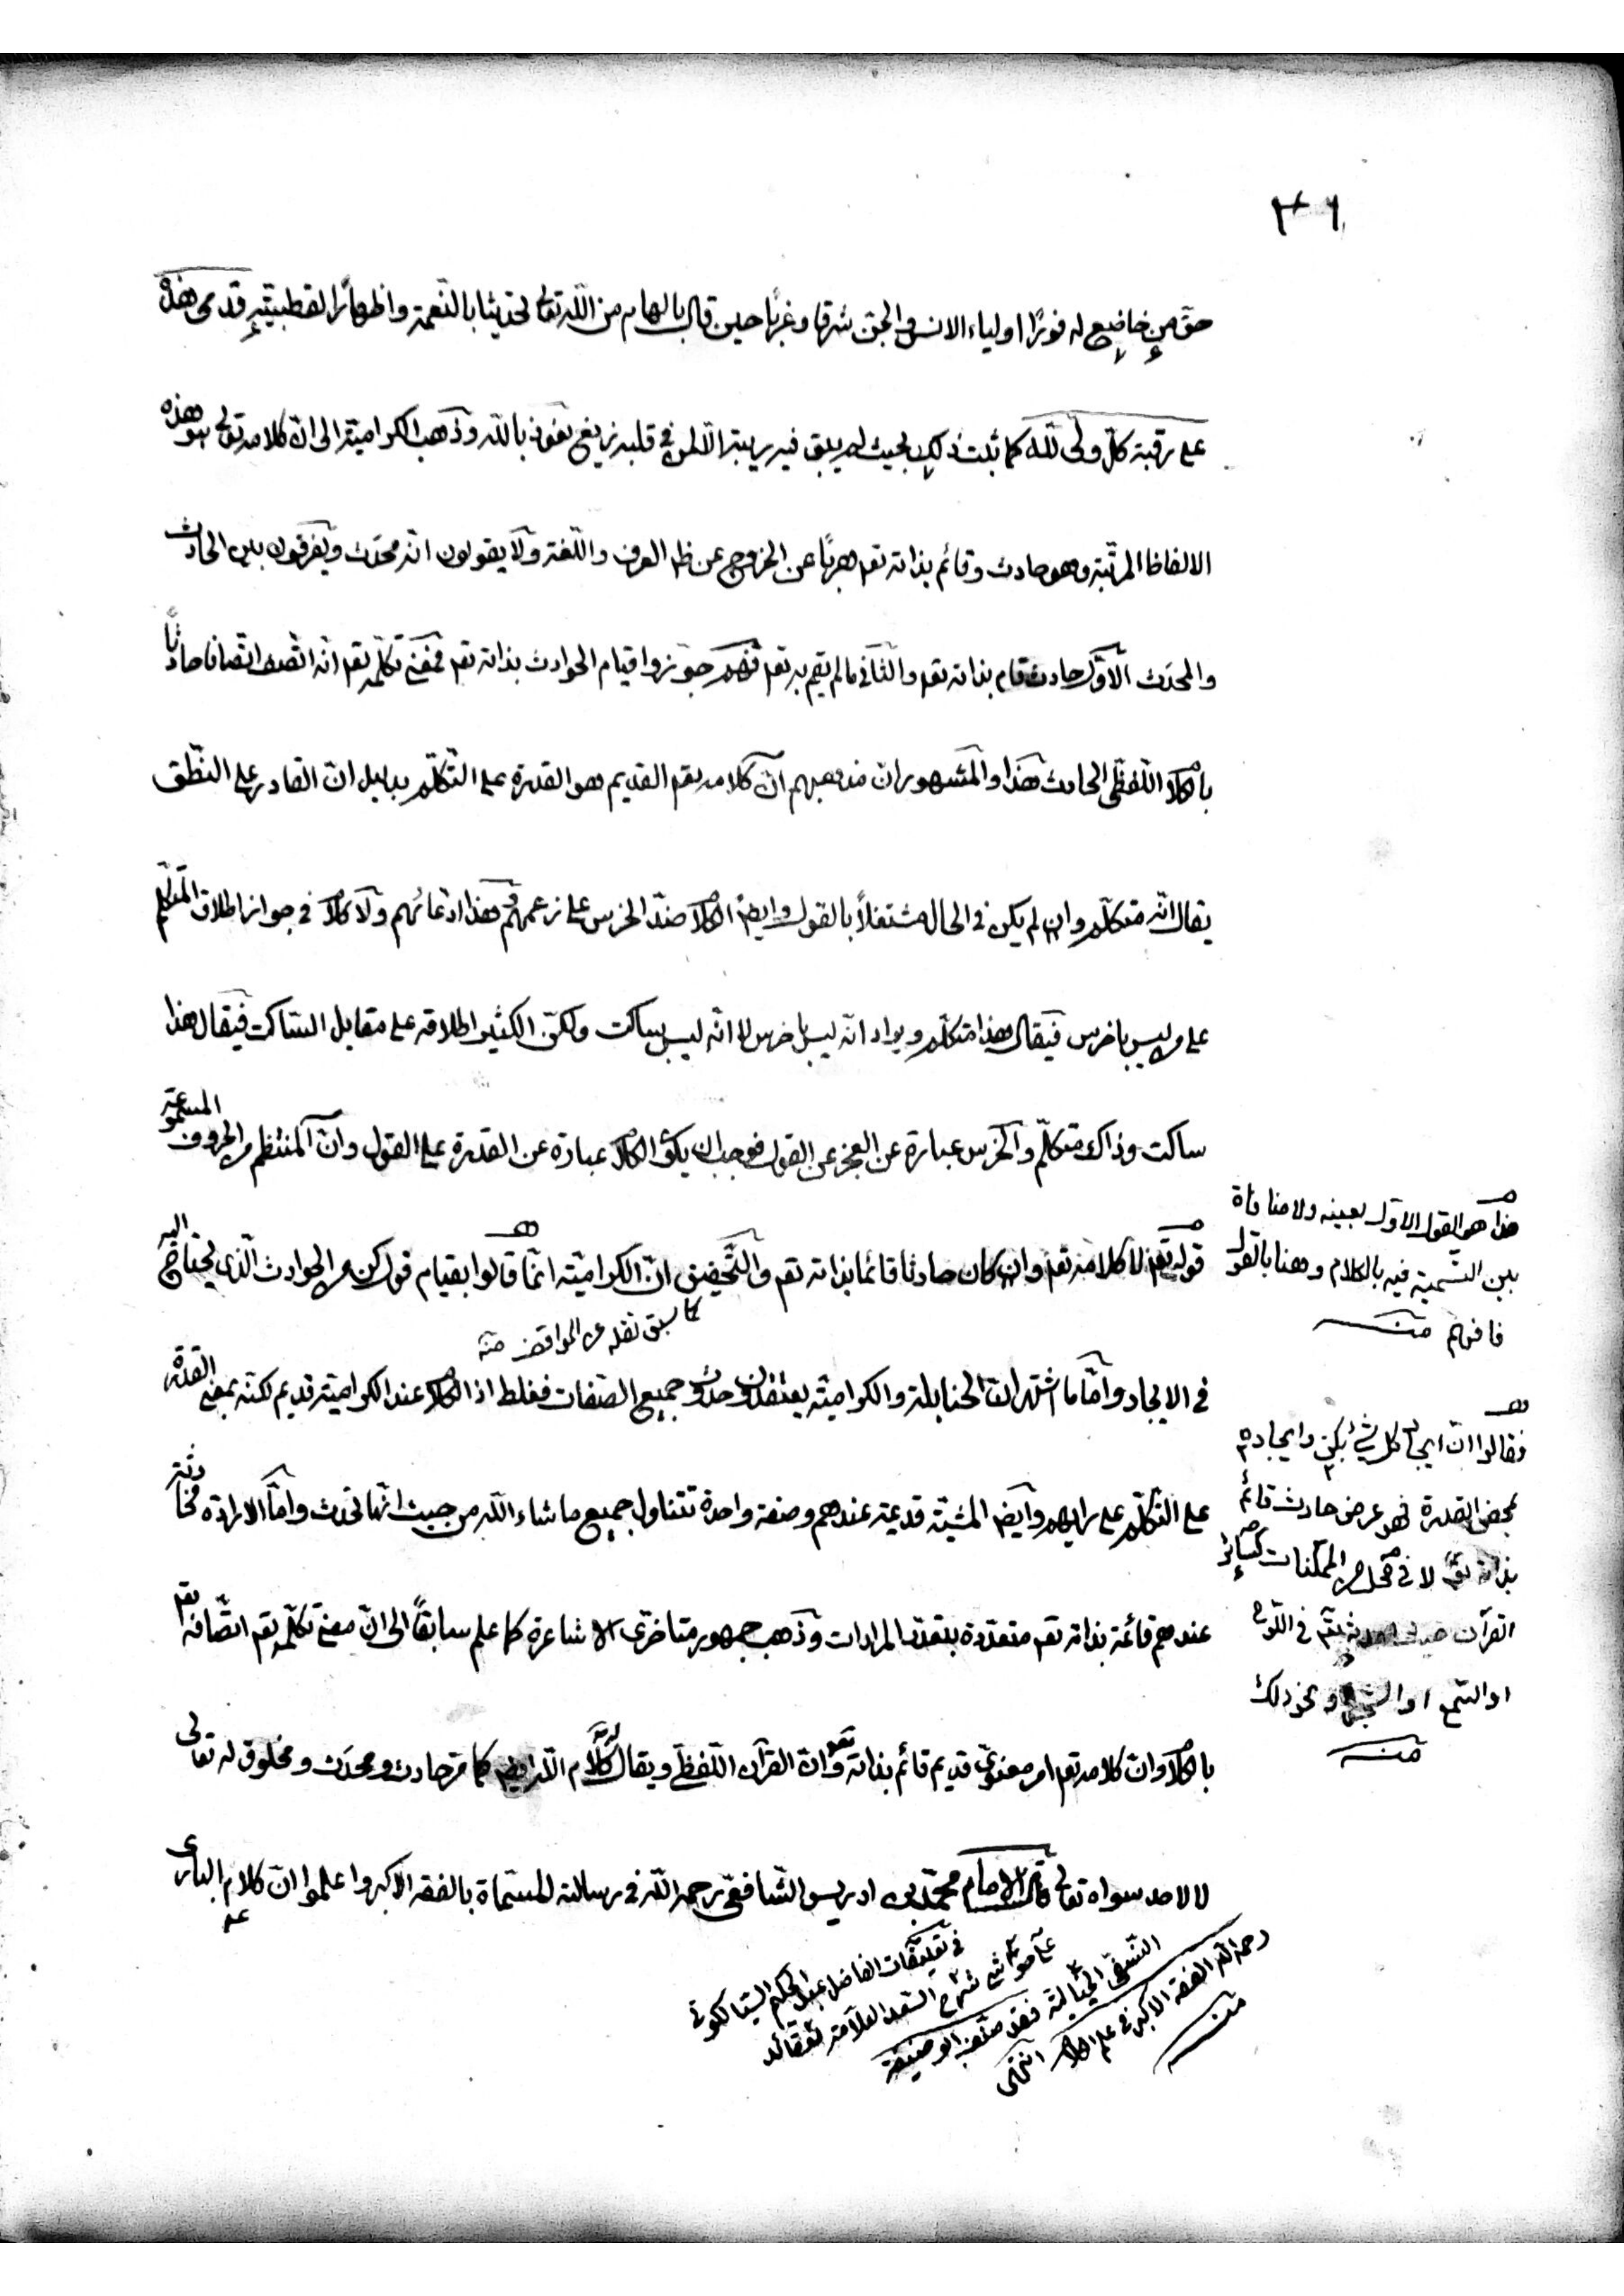 ٣٠٦
حق من خاضع له فورًا اولياء الانس والجن شرقا وغربًا حين قال بالهام من اللّه تعالى تحديثا بالنّعمة واظهارًا لقطبيّته قدمى هذه
على رقبة كلّ ولى للّه كما ثبت ذلك بحيث لم يبق فيه ريبة الّا لمن في قلبه زيغ نعوذ باللّه وذهب الكرامية الى انّ كلامه تعالى هو هذه
الالفاظ المرتّبة وهو حادث وقائم بذاته تعـ هربًا عن الخروج عن ظ العرف واللّغة ولا يقولون انّه محدَث ويفرقون بين الحادث
والمحدَث الاوّل حادث قام بذاته تعـ والثّاني ما لم يقم به تعـ فهم جوّزوا قيام الحوادث بذاته تعـ فمعنى تكلّمه تعـ انّه اتّصف اتّصافا حادثًا
بالكلا اللّفظى الحادث هذا والمشهور ان مذهبهم انّ كلامه تعـ القديم هو القدرة على التّكلّم بدليل انّ القادر على النّطق
يقال انّه متكلّم وان لم يكن في الحال مشتغلًا بالقول وايضا الكلا ضدّ الخرس على زعمهم فهذا ادّعائهم ولا كلا في جواز اطلاق المتكلّم
على من ليس باخرس فيقال هذا متكلّم ويراد انّه ليس باخرس لا انّه ليس بساكت ولكنّ الكثير اطلاقه على مقابل السّاكت فيقال هذا
ساكت وذاك متكلّم والخرس عبارة عن العجز عن القول فوجب ان يكون الكلا عبارة عن القدرة على القول وانّ المنتظم من الحروف المسموعة
قوله تعـ لا كلامه تعـ وان كان حادثا قائما بذاته تعـ والتّحقيق انّ الكرامية انّما قالوا بقيام قول كن من الحوادث الّذى يحتاج اليه
كما سبق نقله عن المواقف منه
في الايجاد وامّا ما اشتهر انّ الحنابلة والكراميّة يعتقدون حدوث جميع الصّفات فغلط اذ الكلا عند الكراميّة قديم لكنّه بمعنى القدرة
على التّكلّم على رايهم وايضا المشيّة قديمة عندهم وصفة واحدة تتناول جميع ما شاء اللّه من حيث انّها تحدث وامّا الارادة فحادثة
عندهم قائمة بذاته تعـ متعدّدة بتعدّد المرادات وذهب جمهور متاخّرى الاشاعرة كما علم سابقًا الى انّ معنى تكلّمه تعـ اتّصافه تعـ
بالكلا وان كلامه تعـ امر معنوى قديم قائم بذاته تعـ وانّ القرآن اللّفظى ويقال له كلام اللّه ايضا كما مرّ حادث ومحدَث ومخلوق له تعالى
لا لاحد سواه تعالى قال الامام محمّد بن ادريس الشّافعى رحمه اللّه في رسالته المسمّاة بالفقه الاكبر واعلموا انّ كلام البارى
هذا هو القول الاوّل بعينه ولا منافاة
بين التّسمية فيه بالكلام وهنا بالقول
فافهم منه
فقالوا انّ ايجاد كل شئ بكن وايجاده
بمحض القدرة فهو عرض حادث قائم
بذاته تعـ لا في محل من الممكنات كسائر
القرآن في اللّوح
او السّمع او ونحو ذلك
منه
في تعليقات الفاضل عبد الحكيم السّيالكوتى
على حواشى شرح السّعد العلّامة لعقائد
النّسفى الخيالية فقد صنّف ابو حنيفة
رحمه اللّه الفقه الاكبر في علم الكلا انتهى
منه